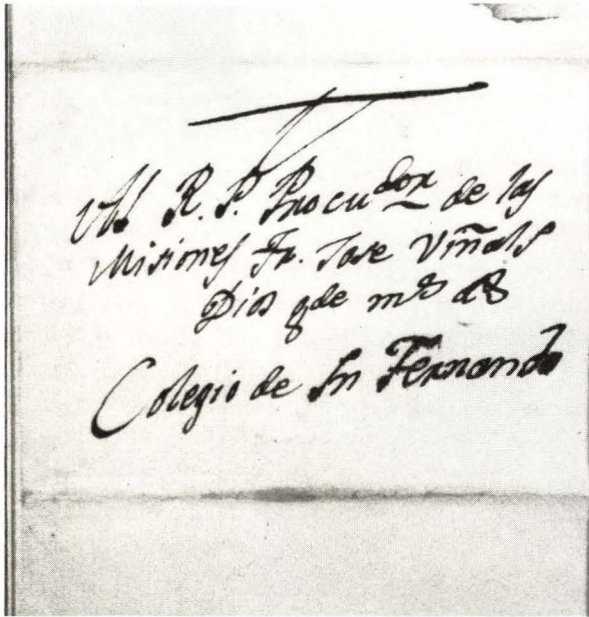 Al R. P. Procudor de las
Misiones Fr. Jose Viñals
Dios gde ms as
Colegio de Sn Fernando